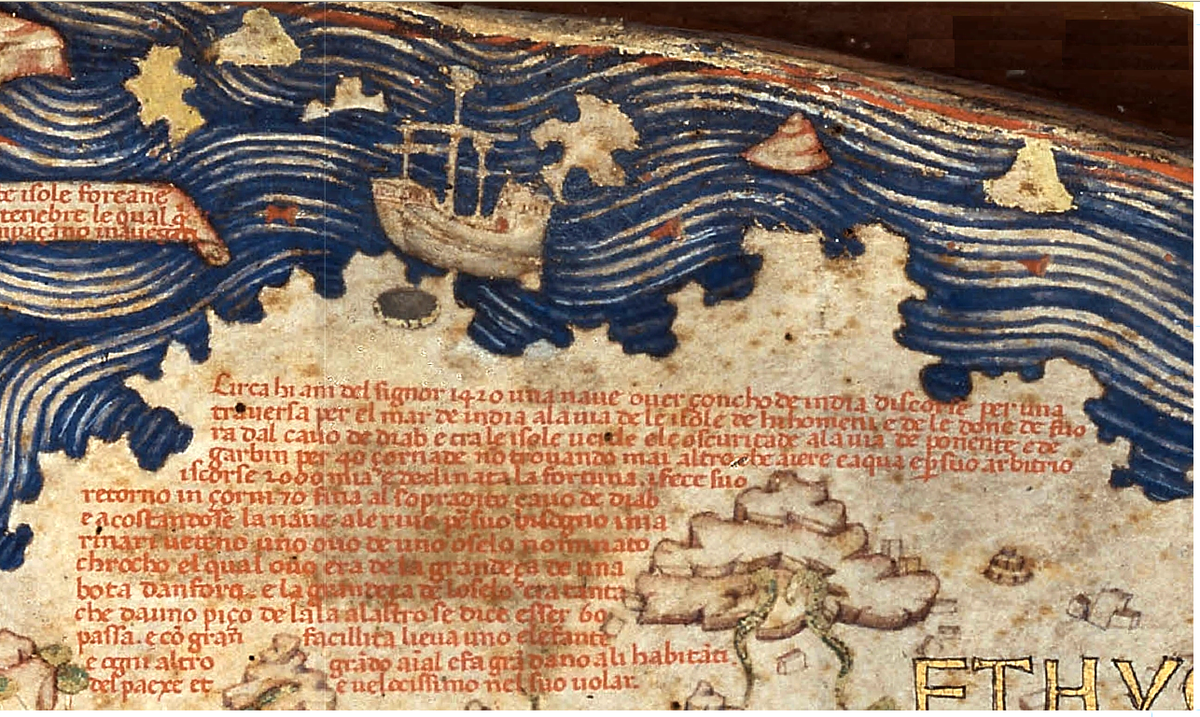 isole foreane
tenebre le qual q̃
mpaçano inauegar
Circa hi ani del signor 1420 una naue ouer çoncho de india discorse per una
trauersa per el mar de india ala uia de le isole de hi homeni e de le done de fuo
ra dal cauo de diab e tra le isole uerde e le oscuritade ala uia de ponente e de
garbin per 40 çornade nõ trouando mai altro che aiere e aqua e p̱ suo arbitrio
iscorse 2000 mia e declinata la fortuna i fece suo
retorno in çorni 70 fina al sopradito cauo de diab
e acostandose la naue ale riue p̱ suo bisogno i ma
rinari uedeno uno ouo de uno oselo nominato
chrocho el qual ouo era de la grandeça de una
bota danforª e la grandeça de loselo era tanta
che dauno piço de lala alaltro se dice esser 60
passa. e cõ gran facillita lieua uno elefante
e ogni altro grãdo aĩal e fa grã dano ali habitãti
del paexe et e uelocissimo nel suo uolar.
ETHYO